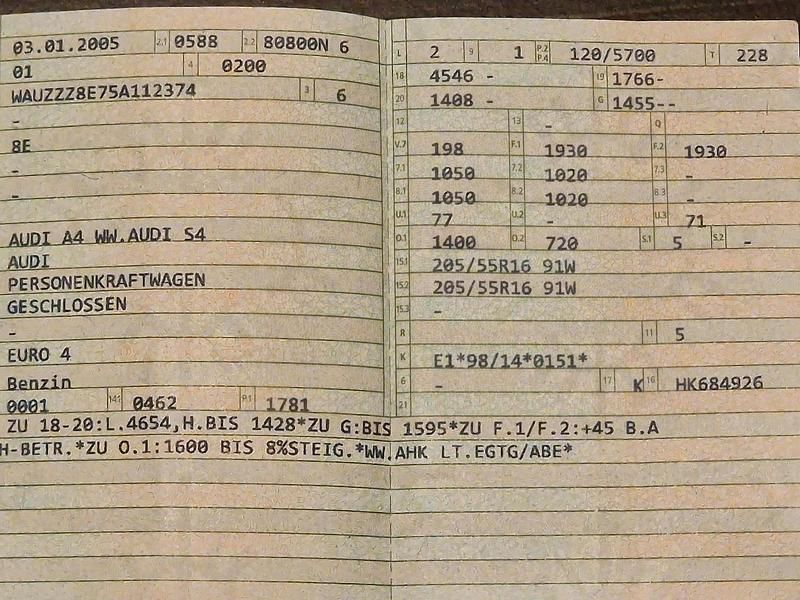 03.01.2005 2.1 0588 2.2 80800N 6
01 4 0200
WAUZZZ8E75A112374 3 6
-
8E
-
-
AUDI A4 WW.AUDI S4
AUDI
PERSONENKRAFTWAGEN
GESCHLOSSEN
-
EURO 4
Benzin
0001 14.1 0462 P.1 1781
L 2 9 1 P.2 P.4 120/5700 T 228
18 4546 - 19 1766-
20 1408 - G 1455--
12 13 - Q
V.7 198 F.1 1930 F.2 1930
7.1 1050 7.2 1020 7.3 -
8.1 1050 8.2 1020 8.3 -
U.1 77 U.2 - U.3 71
O.1 1400 O.2 720 S.1 5 S.2 -
15.1 205/55R16 91W
15.2 205/55R16 91W
15.3 -
R 11 5
K E1*98/14*0151*
6 - 17 K 16 HK684926
21
ZU 18-20:L.4654,H.BIS 1428*ZU G:BIS 1595*ZU F.1/F.2:+45 B.A
H-BETR.*ZU O.1:1600 BIS 8%STEIG.*WW.AHK LT.EGTG/ABE*